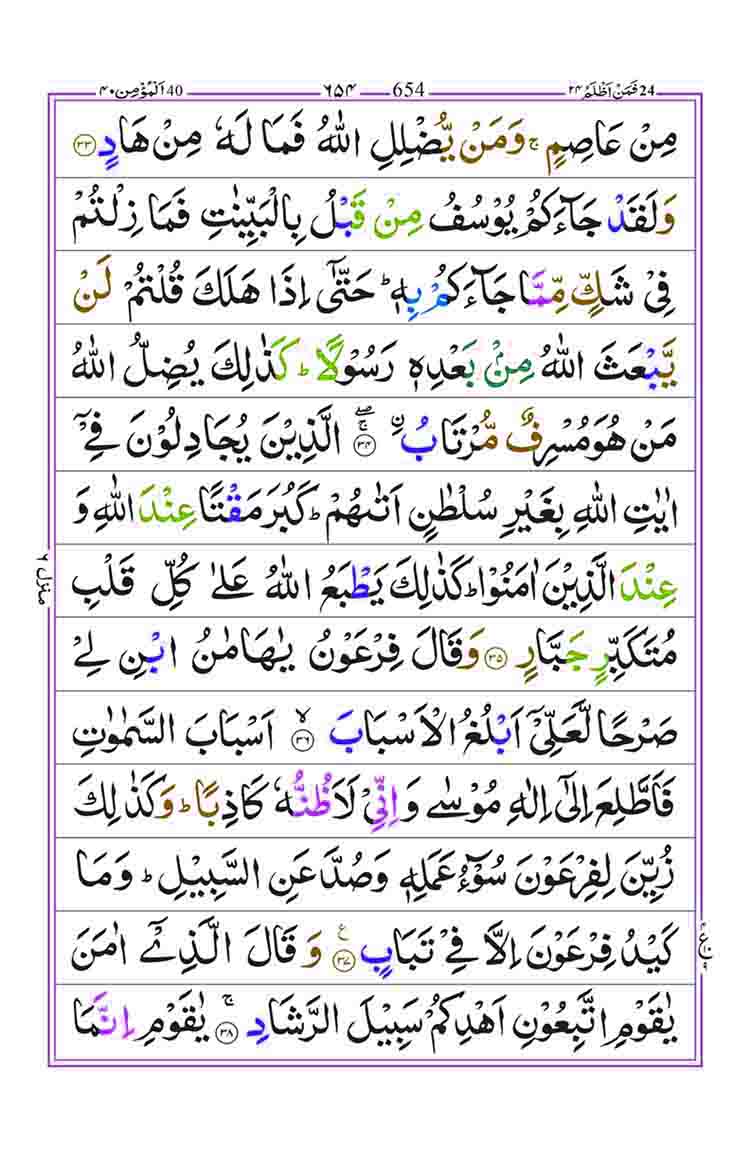 24 فَمَنْ اَظْلَمُ ۲۴ 654 ۶۵۴ 40 اَلْمُؤْمِن ۴۰
مِنْ عَاصِمٍ ۚ وَمَنْ يُّضْلِلِ اللّٰهُ فَمَا لَهٗ مِنْ هَادٍ ﴿۳۳﴾
وَلَقَدْ جَآءَكُمْ يُوْسُفُ مِنْ قَبْلُ بِالْبَيِّنٰتِ فَمَا زِلْتُمْ
فِيْ شَكٍّ مِّمَّا جَآءَكُمْ بِهٖ ؕ حَتّٰٓى اِذَا هَلَكَ قُلْتُمْ لَنْ
يَّبْعَثَ اللّٰهُ مِنْۢ بَعْدِهٖ رَسُوْلًا ؕ كَذٰلِكَ يُضِلُّ اللّٰهُ
مَنْ هُوَ مُسْرِفٌ مُّرْتَابُ ۨ ﴿۳۴﴾ۖۚ الَّذِيْنَ يُجَادِلُوْنَ فِيْٓ
اٰيٰتِ اللّٰهِ بِغَيْرِ سُلْطٰنٍ اَتٰىهُمْ ؕ كَبُرَ مَقْتًا عِنْدَ اللّٰهِ وَ
عِنْدَ الَّذِيْنَ اٰمَنُوْا ؕ كَذٰلِكَ يَطْبَعُ اللّٰهُ عَلٰى كُلِّ قَلْبِ
مُتَكَبِّرٍ جَبَّارٍ ﴿۳۵﴾ وَقَالَ فِرْعَوْنُ يٰهَامٰنُ ابْنِ لِيْ
صَرْحًا لَّعَلِّيْٓ اَبْلُغُ الْاَسْبَابَ ۙ ﴿۳۶﴾ اَسْبَابَ السَّمٰوٰتِ
فَاَطَّلِعَ اِلٰٓى اِلٰهِ مُوْسٰى وَاِنِّيْ لَاَظُنُّهٗ كَاذِبًا ؕ وَكَذٰلِكَ
زُيِّنَ لِفِرْعَوْنَ سُوْٓءُ عَمَلِهٖ وَصُدَّ عَنِ السَّبِيْلِ ؕ وَمَا
كَيْدُ فِرْعَوْنَ اِلَّا فِيْ تَبَابٍ ﴿۳۷﴾ع وَقَالَ الَّذِيْٓ اٰمَنَ
يٰقَوْمِ اتَّبِعُوْنِ اَهْدِكُمْ سَبِيْلَ الرَّشَادِ ۚ ﴿۳۸﴾ يٰقَوْمِ اِنَّمَا
منزل ۶